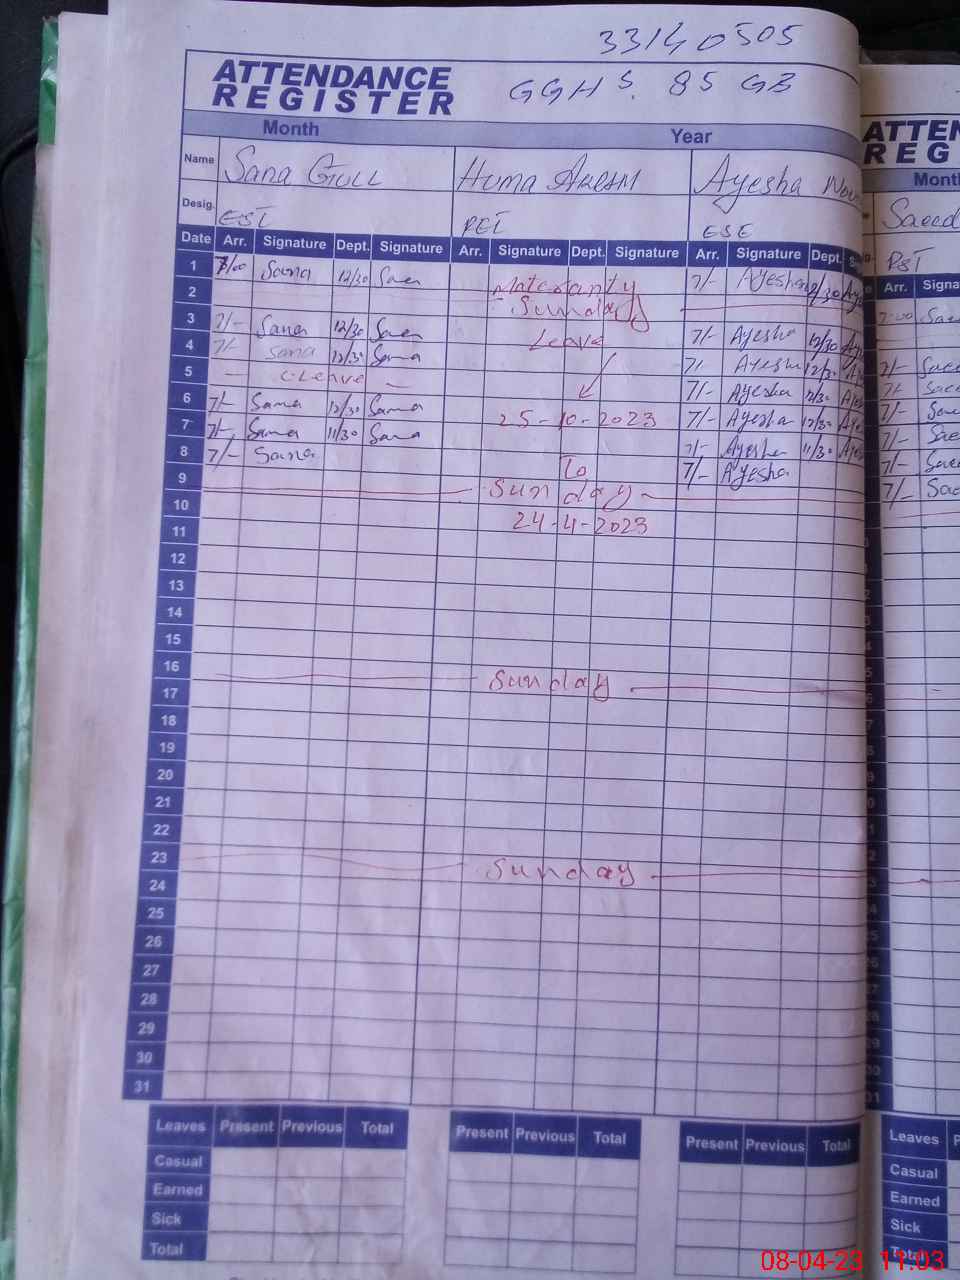 33140505
ATTENDANCE REGISTER GGHS. 85 GB
Month Year
Name Sana Gull Huma Akram Ayesha
Desig. EST PET ESE
Date Arr. Signature Dept. Signature Arr. Signature Dept. Signature Arr. Signature Dept.
1 7/00 Sana 12/30 Matetanty 7/- Ayesha 12/30
2 Sunday
3 7/- Sana 12/30 Leave 7/- Ayesha 12/30
4 7/- Sana 12/30 Sana 7/- Ayesha 12/30
5 - C-Leave - 7/- Ayesha 12/30
6 7/- Sana 12/30 Sana 25-10-2023 7/- Ayesha 12/30
7 7/- Sana 11/30 Sana 7/- Ayesha 11/30
8 7/- Sana To 7/- Ayesha
9 Sunday
10 24-4-2023
11
12
13
14
15
16 Sunday
17
18
19
20
21
22
23 Sunday
24
25
26
27
28
29
30
31
Leaves Present Previous Total Present Previous Total Present Previous Total
Casual
Earned
Sick
Total
ATTEN
REG
Month
Saeed
PST
Arr. Signa
7:00 Sae
7/- Saee
7/- Saee
7/-
7/- Sae
7/- Saee
7/-
Leaves
Casual
Earned
Sick
Total
08-04-23 11:03